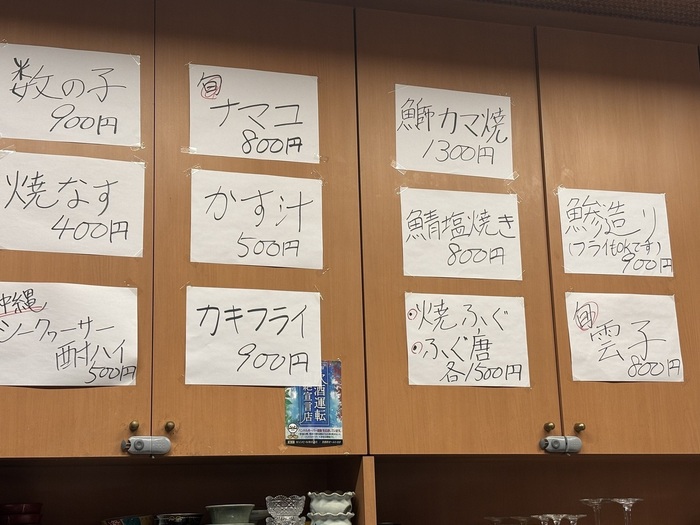 数の子
900円
焼なす
400円
沖縄
シークヮーサー
酎ハイ
500円
旬
ナマコ
800円
かす汁
500円
カキフライ
900円
飲酒運転
拒絶宣言店
鰤カマ焼
1300円
鯖塩焼き
800円
焼ふぐ
ふぐ唐
各1500円
鯵造り
(フライもokです)
900円
旬
雲子
800円